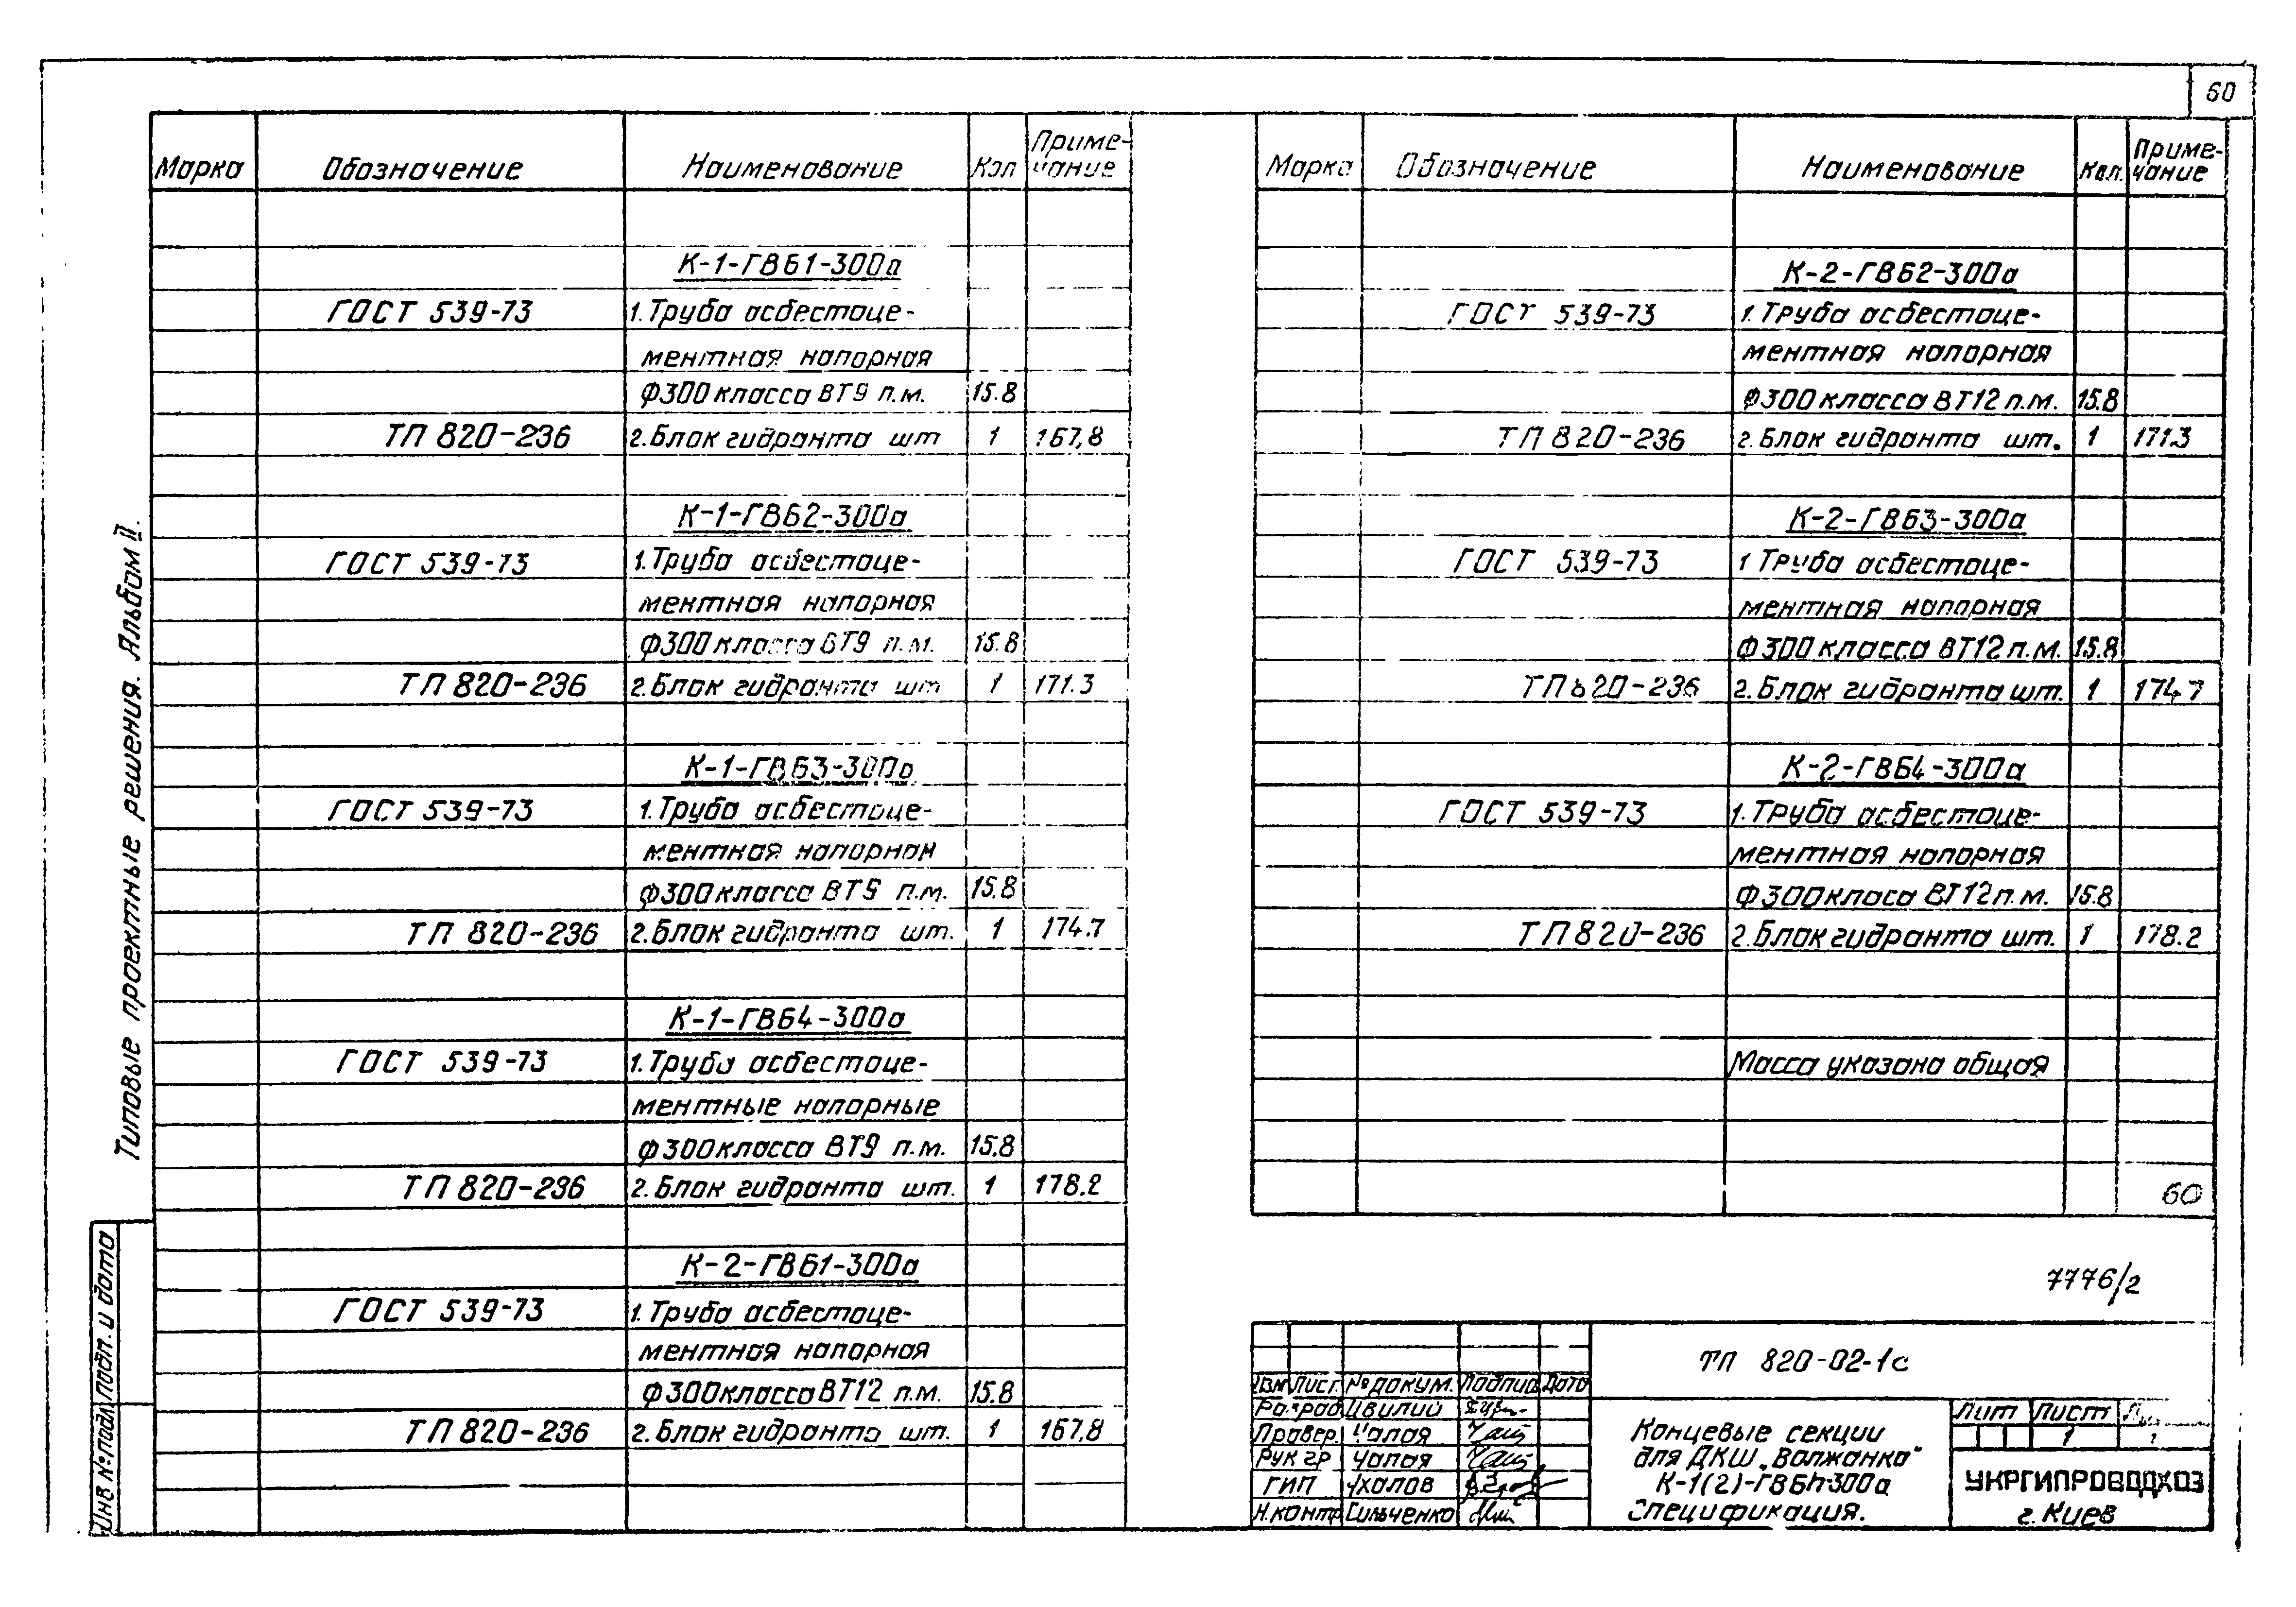 60
Марка Обозначение Наименование Кол Приме-
чание
К-1-ГВБ1-300а
ГОСТ 539-73 1. Труба асбестоце-
ментная напорная
Ф300 класса ВТ9 п.м. 15.8
ТП 820-236 2. Блок гидранта шт 1 167,8
К-1-ГВБ2-300а
ГОСТ 539-73 1. Труба асбестоце-
ментная напорная
Ф300 класса ВТ9 п.м. 15.8
ТП 820-236 2. Блок гидранта шт 1 171.3
К-1-ГВБ3-300а
ГОСТ 539-73 1. Труба асбестоце-
ментная напорная
Ф300 класса ВТ9 п.м. 15.8
ТП 820-236 2. Блок гидранта шт. 1 174.7
К-1-ГВБ4-300а
ГОСТ 539-73 1. Труба асбестоце-
ментные напорные
Ф300 класса ВТ9 п.м. 15.8
ТП 820-236 2. Блок гидранта шт. 1 178.2
К-2-ГВБ1-300а
ГОСТ 539-73 1. Труба асбестоце-
ментная напорная
Ф300 класса ВТ12 п.м. 15.8
ТП 820-236 2. Блок гидранта шт. 1 167.8
Марка Обозначение Наименование Кол. Приме-
чание
К-2-ГВБ2-300а
ГОСТ 539-73 1. Труба асбестоце-
ментная напорная
Ф300 класса ВТ12 п.м. 15.8
ТП 820-236 2. Блок гидранта шт. 1 171.3
К-2-ГВБ3-300а
ГОСТ 539-73 1 Труба асбестоце-
ментная напорная
Ф300 класса ВТ12 п.м. 15.8
ТП 820-236 2. Блок гидранта шт. 1 174.7
К-2-ГВБ4-300а
ГОСТ 539-73 1. Труба асбестоце-
ментная напорная
Ф300 класа ВТ12 п.м. 15.8
ТП 820-236 2. Блок гидранта шт. 1 178.2
Масса указана общая
60
7776/2
Типовые проектные решения. Альбом II.
Инв № подл Подп. и дата
ТП 820-02-1с
Изм Лист № докум. Подпис Дата
Разраб Цвилий
Провер. Чалая
Рук гр Чалая
ГИП
Н.контр Сильченко
Концевые секции
для ДКШ „Волжанка"
К-1(2)-ГВБn-300а
Спецификация.
Лит Лист
1
УКРГИПРОВОДХОЗ
г. Киев